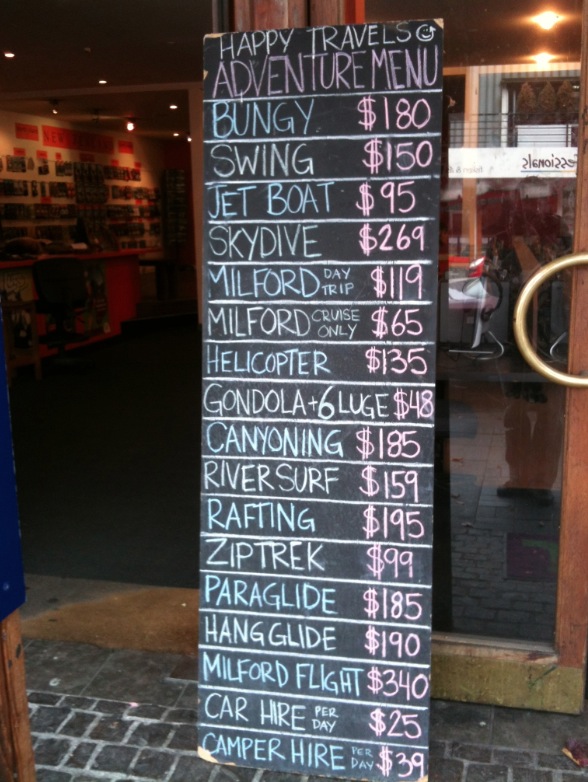 HAPPY TRAVELS
ADVENTURE MENU
BUNGY $180
SWING $150
JET BOAT $95
SKYDIVE $269
MILFORD DAY TRIP $119
MILFORD CRUISE ONLY $65
HELICOPTER $135
GONDOLA+6 LUGE $48
CANYONING $185
RIVER SURF $159
RAFTING $195
ZIPTREK $99
PARAGLIDE $185
HANG GLIDE $190
MILFORD FLIGHT $340
CAR HIRE PER DAY $25
CAMPER HIRE PER DAY $39
essionals